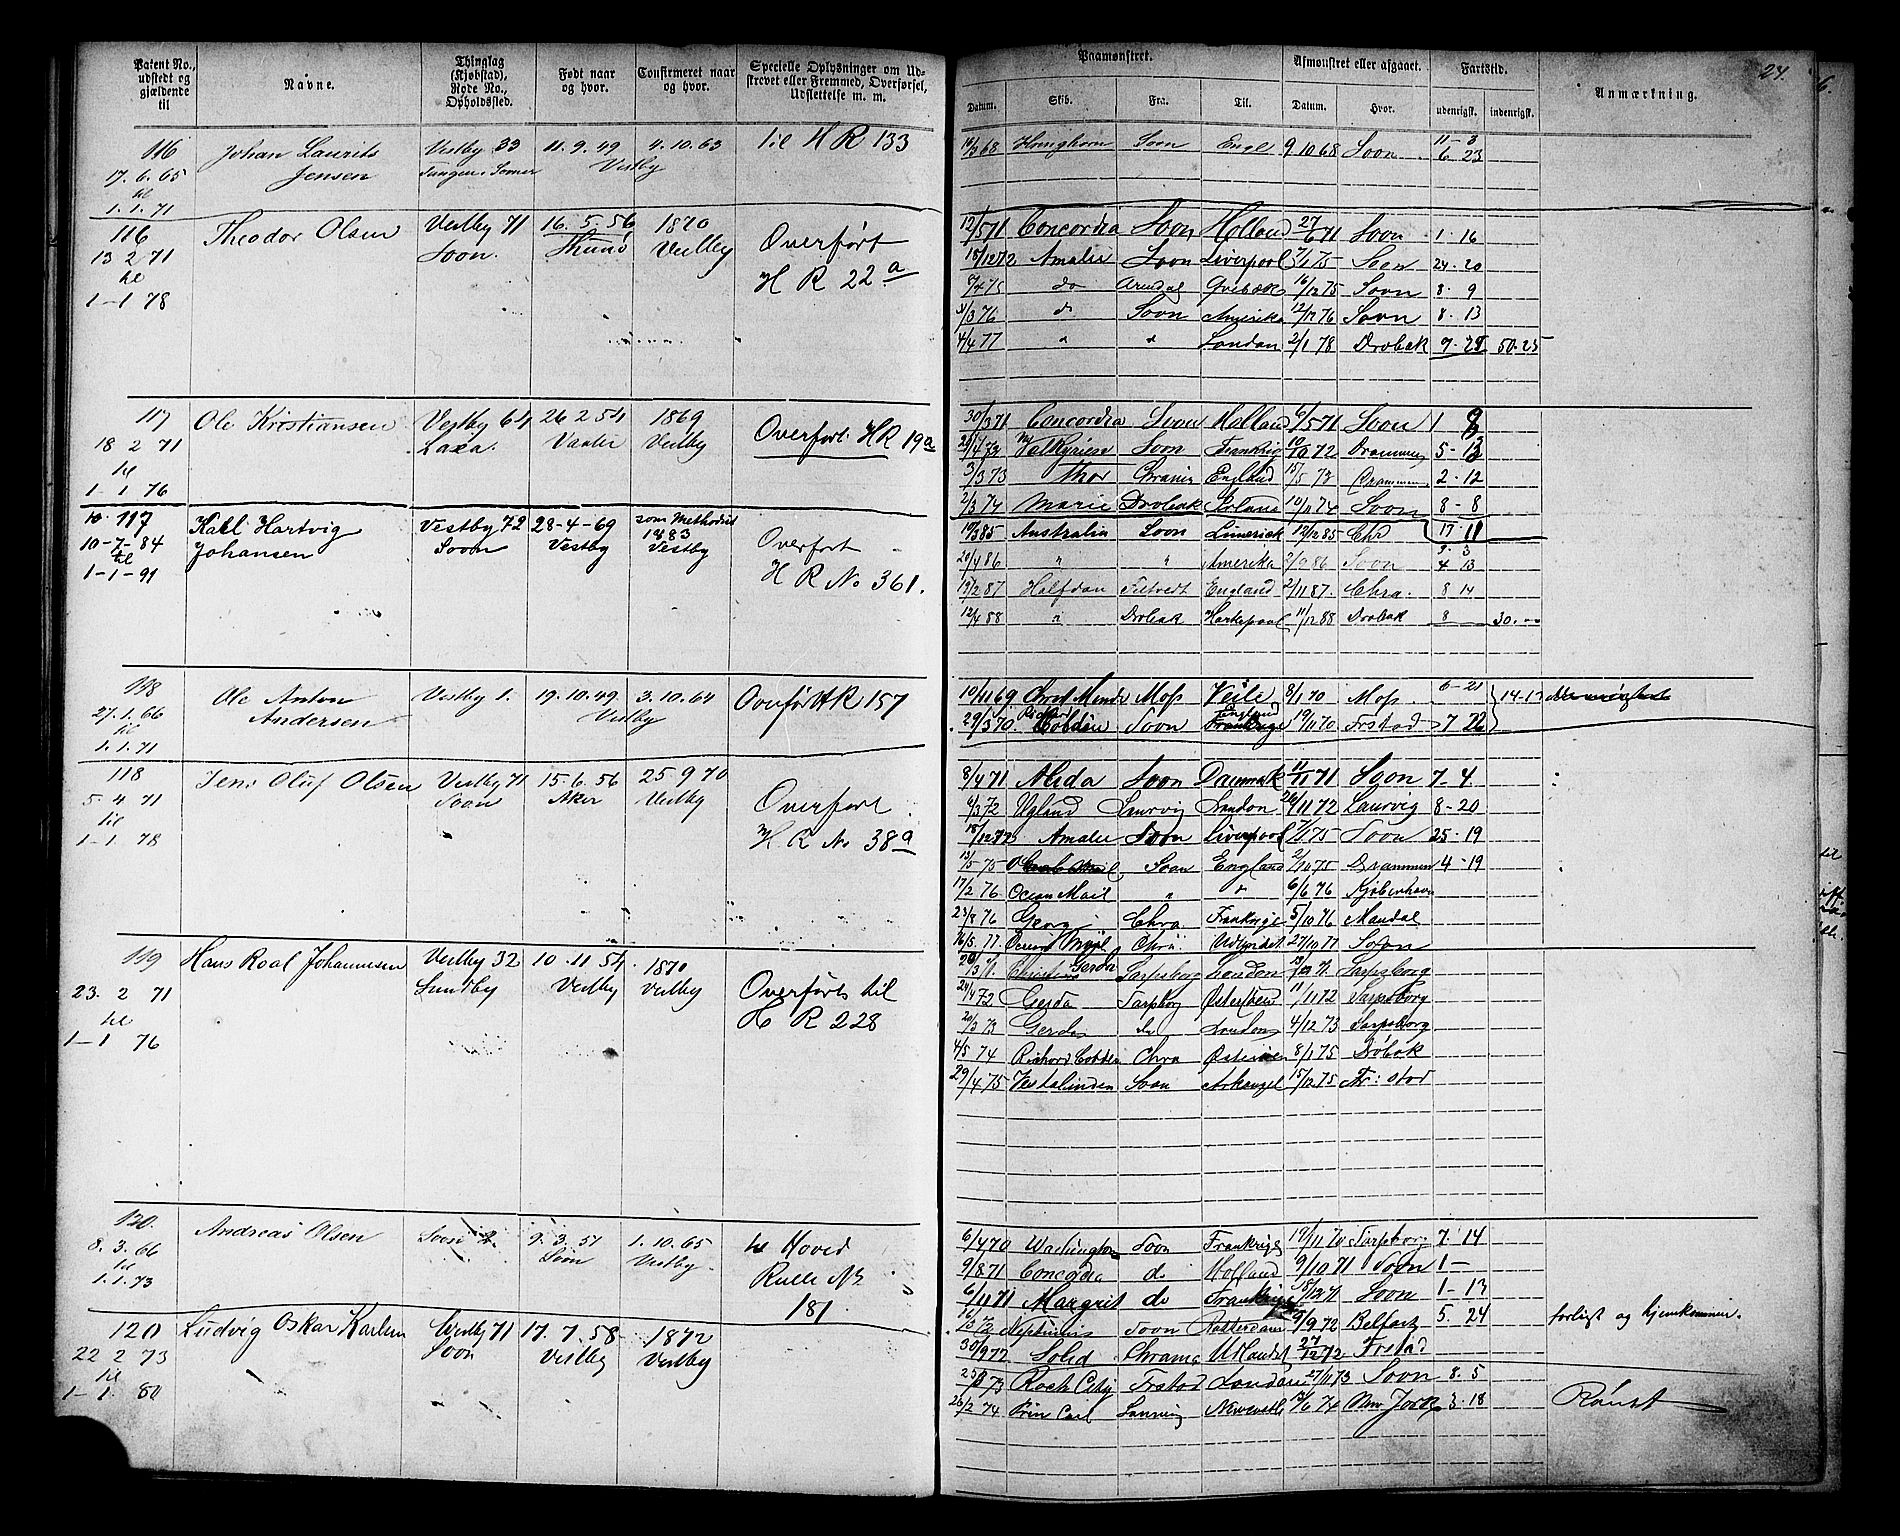 Patent No., udstedt og gjældende til
Navne.
Thinglag (Kjøbstad), Rode No., Opholdssted.
Født naar og hvor.
Confirmeret naar og hvor.
Specielle Oplysninger om Udskrevet eller Fremmed, Overførsel, Udslettelse m. m.
116 Johan Laurits Vestby 33 11. 9. 49 4. 10. 63 til H R 133
17. 6. 65 Jensen Vestby
til
1. 1. 71
116 Theodor Olsen Vestby 71 16. 5. 56 1870 Overført
13 2 71 Soon. Vestby H R 22 a
til
1-1 78
117 Ole Kristiansen Vestby 64 26 2 54 1869 Overført. HR 19a
18 2 71 Vestby
til
1-1 76
10. 117 Karl Hartvig Vestby 72 28-4-69 som Methodist
10-7-84 Johansen Soon Vestby 1883 Vestby Overført
til
1-1-91 H R No 361.
118 Ole Anton Vestby 1. 19. 10. 49 3. 10. 64 Overfør HR 157
27. 1. 66 Andersen Vestby
til
1. 1. 71
118 Jens Oluf Olsen Vestby 71 15. 6. 56 25 9 70 Overført
5. 4 71 Soon Aker Vestby
til H R No 38 a
1-1 78
119 Hans Roal Johannesen Vestby 32 10. 11. 54 1870
23. 2 71 Sundby Vestby Vestby Overføres til
til H R 228
1-1 76
120. Andreas Olsen Soon 2 9. 3. 51 1. 10. 65 Hoved
8. 3. 66 Soon Vestby Rulle No
til 181.
1. 1. 73
120 Ludvig Oskar Karlsen Vestby 71 17. 7. 58 1872
22 2 73 Soon Vestby Vestby
til
1-1. 80
24.
Paamønstret. Afmønstret eller afgaaet. Fartstid. Anmærkning.
Datum. Skib. Fra. Til. Datum. Hvor. udenrigsk. indenrigsk.
Soon Engl 9 10 68 Soon 11-3
6 23
12/5 71 Concordia Soon Holland 27/6 71 Soon 1. 16
18/12 72 Amalie Soon Liverpool 7/1 75 Soon 24. 20
do Arendal 16/12 75 Soon 8. 9
3/3 76 do Soon Amerika 12/12 76 Soon 8. 13
4/4 77 " " London 2/1 78 Drobak 9. 25 50. 25
30/3 71 Concordia Soon Holland 6/5 71 Soon 1
Valkyrien Soon Frankrig 10/10 72 Drammen 5-13
3/3 73 Thor England 15/5 73 2-12
2/3 74 Marie Drobak 10/11 74 Soon 8-8
Australia Soon Limerick 12/12 85 Chr 17 11
9. 3
20/4 86 " " Amerika 2/9 86 Soon 4 13
12/2 87 Halfdan England 2/11 87. Chra. 8 14
12/4 88 " Drobak Hartepool 11/12 88 Drobak 8 30.--
10/11 69 Moss Veile 8/1 70 Moss 6-21 14. 13
29/3 70 Richard Cobden Soon England Frankrige 19/11 70 Frstad 7 22
8/4 71 Alida Soon Danmark 11/11 71 Soon 7-4
6/3 72 Ugland Laurvig London 26/11 72 Laurvig 8-20
18/12 72 Amalie Soon Liverpool 7/1 75 Soon 25-19
13/5 75 Soon England 2/10 75 Drammen 4-19
17/2 76 Ocean Mail " " 6/6 76 Kjøbenhavn
23/8 76 Georg Chra. Frankrige 5/10 76 Mandal
16/5. 77. 27/10 77 Soon
Gerda Sarpsborg London Sarpsborg
24/4 72 Gerda Sarpborg 11/11 72 Sarpsborg
20/3 73 Gerda do London 4/12 73 Sarpsborg
4/5 74 Richard Cobden Chra 8/1 75 Drøbak
29/4 75 Vestalinden Soon Arkangel 15/12 75 Fr: stad
6/4 70 Washington Soon Frankrige 19/11 70 Sarpsborg 7. 14
9/8 71 Concordia do Holland 9/10 71 Soon 1-
6/11 71 Margrit do Frankrige 18/12 71 Soon 1-13
Neptunus Soon Rotterdam 5/9 72 Belfast 5. 24 forligt og hjemkommer.
30/9 72 Solid Chrania Udlandet 27/12 72 Frstad
Rock City Frstad London 27/11 73 Soon 8. 5
26/2 74 Newcastle New York 3. 18 Rømt